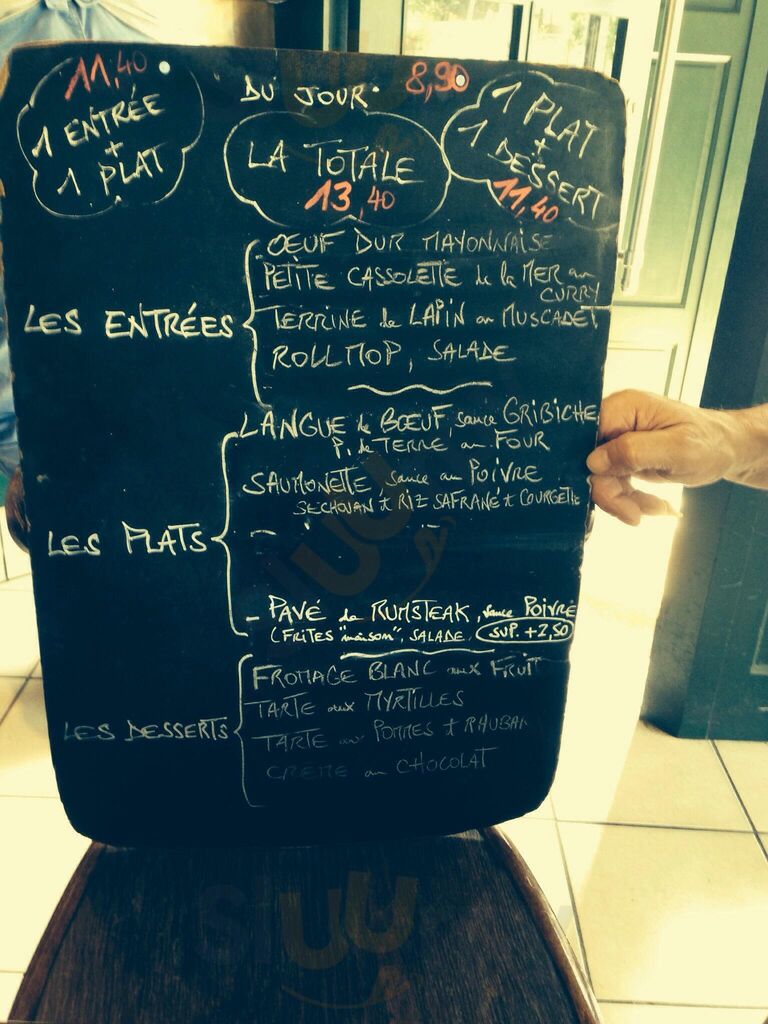 11,40
1 ENTRÉE
+
1 PLAT
DU JOUR 8,90
LA TOTALE
13,40
1 PLAT
+
1 DESSERT
11,40
LES ENTRÉES
OEUF DUR MAYONNAISE
PETITE CASSOLETTE de la MER au
CURRY
TERRINE de LAPIN au MUSCADET
ROLLMOP, SALADE
LES PLATS
LANGUE de BŒUF, sauce GRIBICHE
P. de TERRE au FOUR
SAUMONETTE sauce au POIVRE
SECHOUAN + RIZ SAFRANÉ + COURGETTE
- PAVÉ de RUMSTEAK, sauce POIVRE
(FRITES "maison", SALADE SUP. +2,50
LES DESSERTS
FROMAGE BLANC aux FRUIT
TARTE aux MYRTILLES
TARTE aux POMMES + RHUBAR
CRÈME au CHOCOLAT